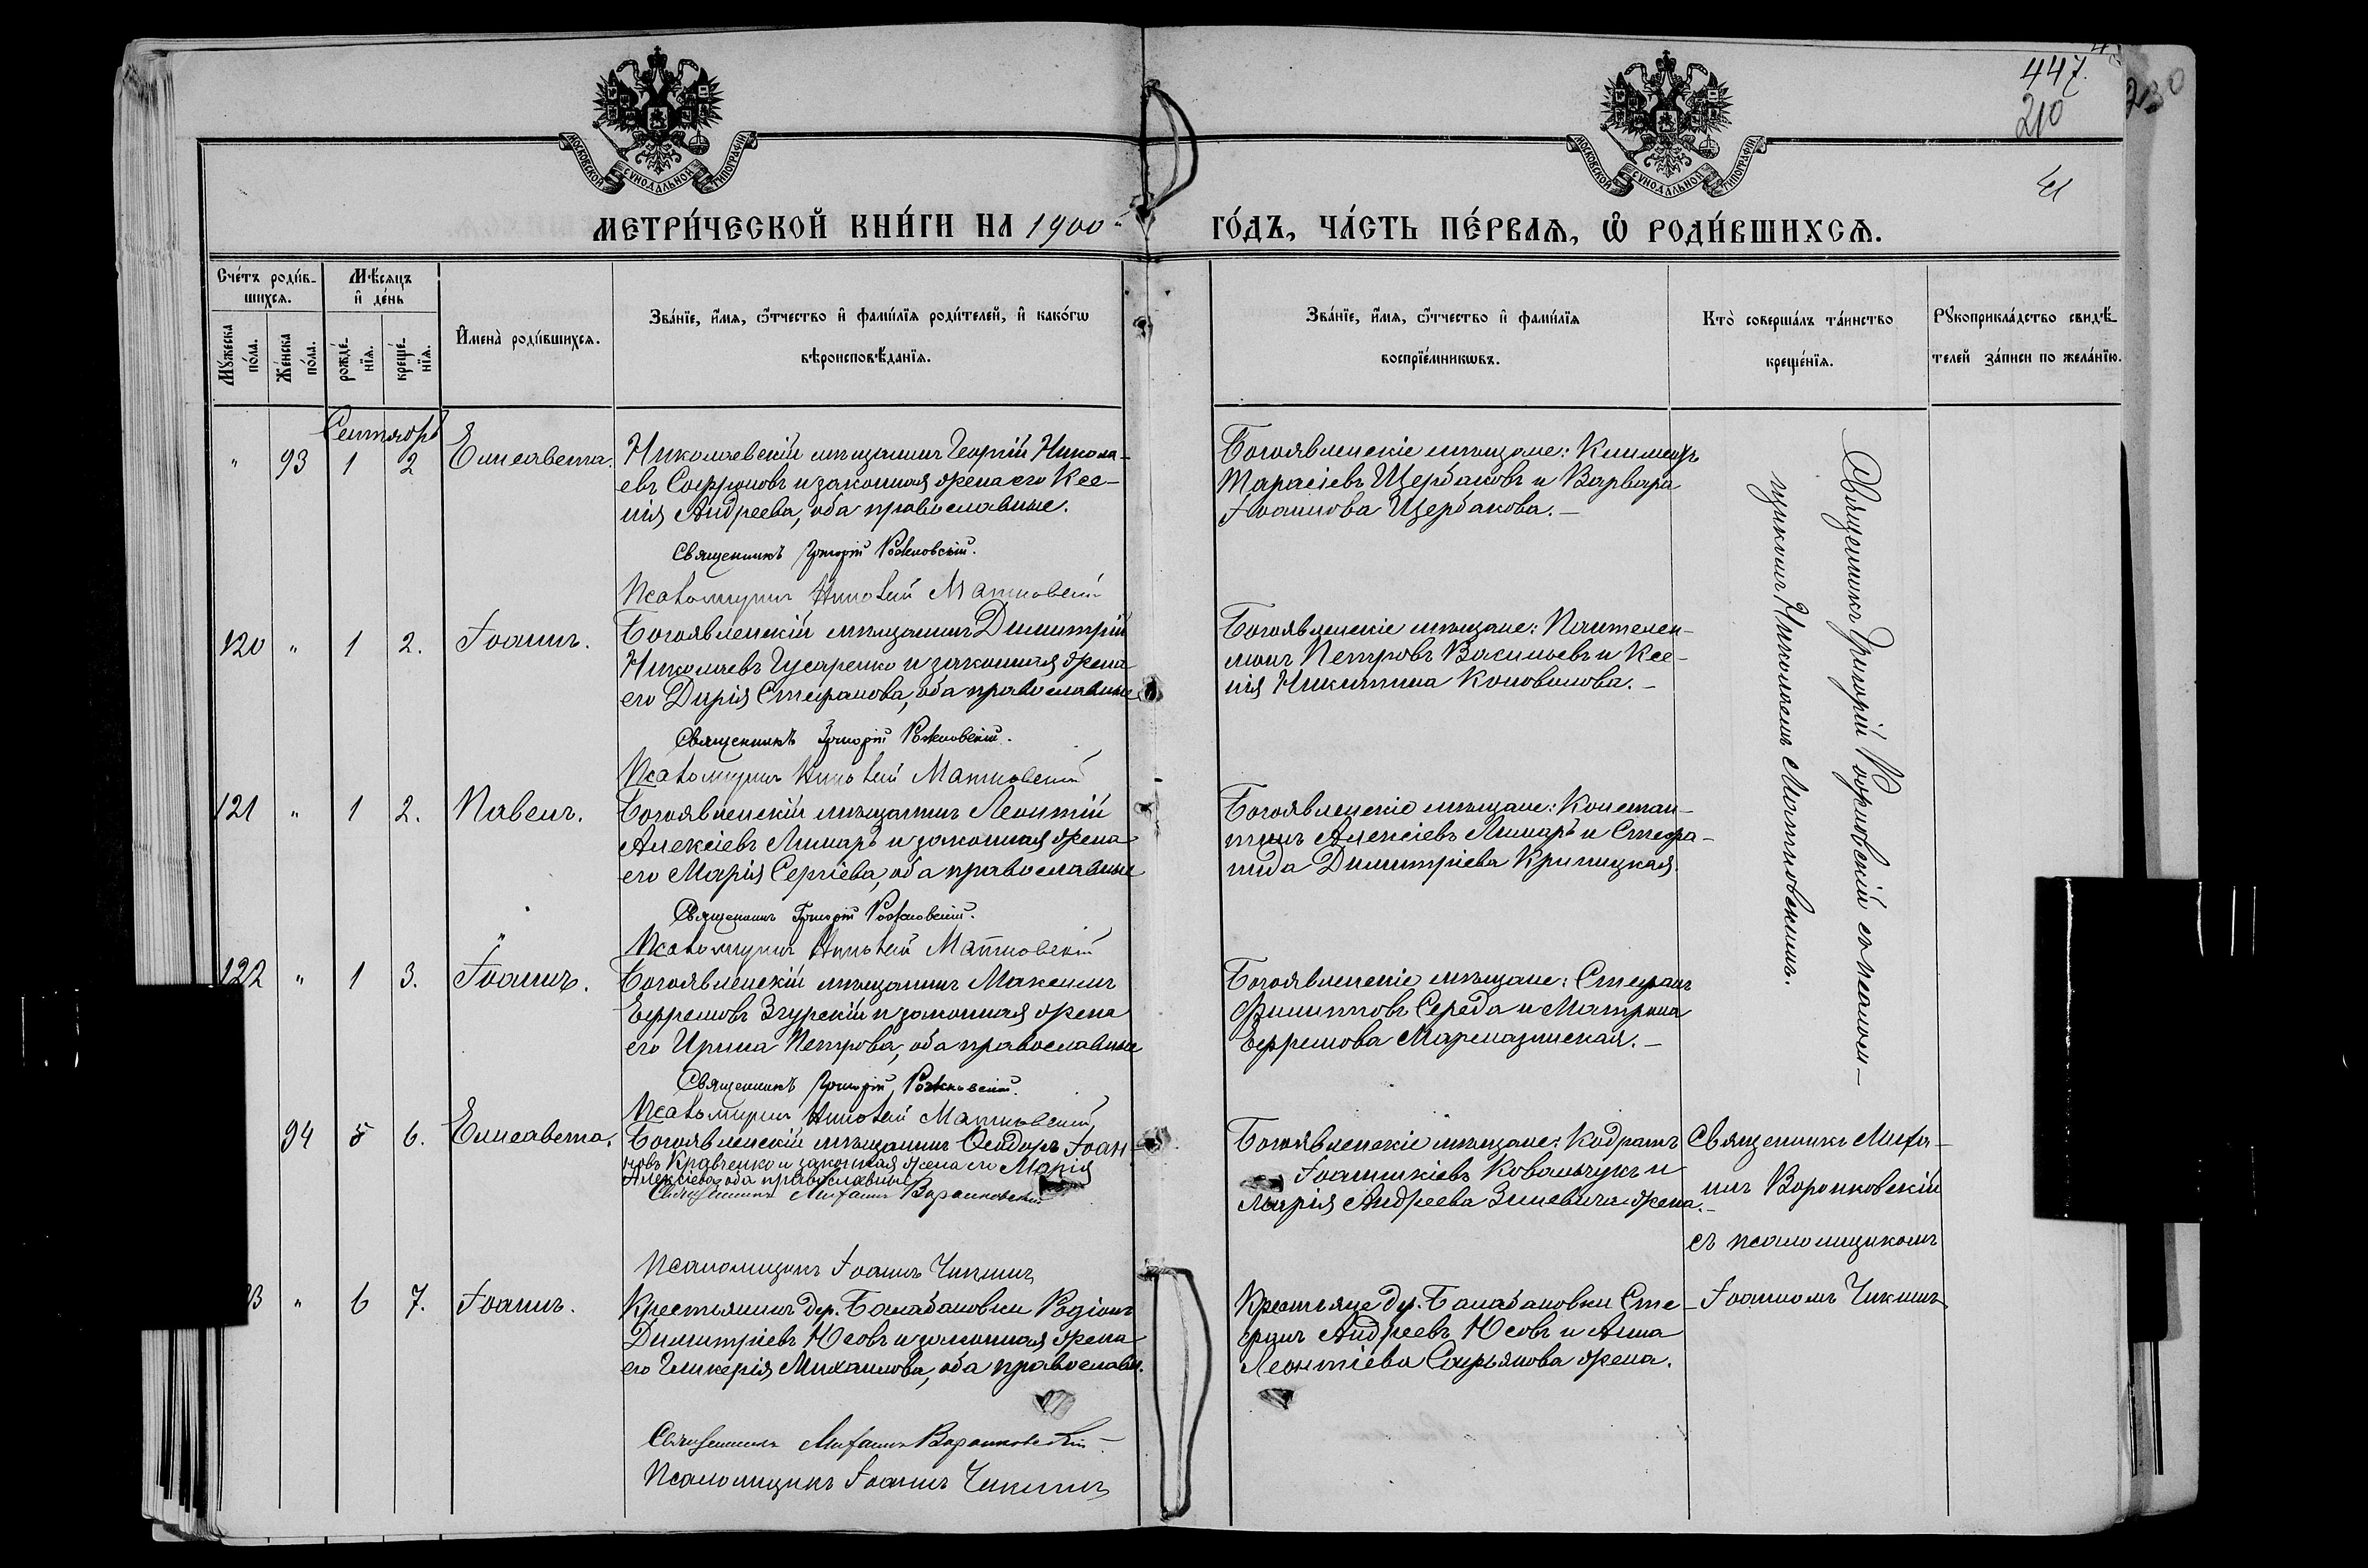 447.
210
230
МОСКОВСКОЙ СѴНОДАЛЬНОЙ ТИПОГРАФІИ
МОСКОВСКОЙ СѴНОДАЛЬНОЙ ТИПОГРАФІИ
МЕТРИ́ЧЕСКОЙ КНИ́ГИ НА 1900
ГО́ДЪ, ЧА́СТЬ ПЕ́РВАѦ, Ѡ҆ РОДИ́ВШИХСѦ.
Сче́тъ роди́в-
шихсѧ.
Мꙋ́жеска по́ла.
Же́нска по́ла.
Мѣ́сѧцъ и҆ де́нь
рожде́-нїѧ.
креще́-нїѧ.
И҆мена̀ роди́вшихсѧ.
Зва́нїе, и҆́мѧ, ѻ҆́тчество и҆ фами́лїѧ роди́телей, и҆ како́гѡ
вѣроисповѣ́данїѧ.
Зва́нїе, и҆́мѧ, ѻ҆́тчество и҆ фами́лїѧ
воспрїе́мникѡвъ.
Кто̀ соверша́лъ та́инство
креще́нїѧ.
Рꙋкоприкла́дство свидѣ́-
телей за́писи по жела́нїю.
Сентябрь
" 93 1 2 Елисавета.
Николаевскій мѣщанинъ Георгій Никола-
евъ Софроновъ и законная жена его Ксе-
нія Андреева, оба православные.
Священникъ Григорій Рожновскій.
Псаломщикъ Николай Матновскій
Богоявленскіе мѣщане: Климентъ
Тарасіевъ Щербаковъ и Варвара
Іоаннова Щербакова.—
Священникъ Григорій Рожновскій съ псалом-
щикомъ Николаемъ Матновскимъ.
120 " 1 2. Іоаннъ.
Богоявленскій мѣщанинъ Димитрій
Николаевъ Гусаренко и законная жена
его Дарія Стефанова, оба православные
Священникъ Григорій Рожновскій.
Псаломщикъ Николай Матновскій
Богоявленскіе мѣщане: Пантелеи-
монъ Петровъ Васильевъ и Ксе-
нія Никитина Коновалова.—
121 " 1 2. Павелъ.
Богоявленскій мѣщанинъ Леонтій
Алексіевъ Лимарь и законная жена
его Марія Сергіева, оба православные
Священникъ Григорій Рожновскій.
Псаломщикъ Николай Матновскій
Богоявленскіе мѣщане: Констан-
тинъ Алексіевъ Лимарь и Стефа-
нида Димитріева Криницкая.
122 " 1 3. Іоаннъ.
Богоявленскій мѣщанинъ Максимъ
Ефремовъ Згурскій и законная жена
его Ирина Петрова, оба православные
Священникъ Григорій Рожновскій.
Псаломщикъ Николай Матновскій
Богоявленскіе мѣщане: Стефанъ
Филипповъ Середа и Матрона
Ефремова
94 5 6. Елисавета.
Богоявленскій мѣщанинъ Ѳеодоръ Іоан-
новъ Кравченко и законная жена его Марія
Алексіева оба православные
Священникъ Митрофанъ Воронковскій
Псаломщикъ Іоаннъ Чикинъ
Богоявленскіе мѣщане: Кодратъ
Іоанникіевъ Ковальчукъ и
Марія Андреева Зиневича жена.—
Священникъ
Воронковскій
съ псаломщикомъ
Іоанномъ Чикинъ
3 " 6 7. Іоаннъ.
Крестьянинъ дер. Балабановки Родіонъ
Димитріевъ Юсовъ и законная жена
его Гликерія Михаилова, оба православн.
Священникъ Воронковскій
Псаломщикъ Іоаннъ Чикинъ
Крестьяне дер. Балабановки Сте-
фанъ Андреевъ Юсовъ и Анна
Леонтіева Сафьянова жена.